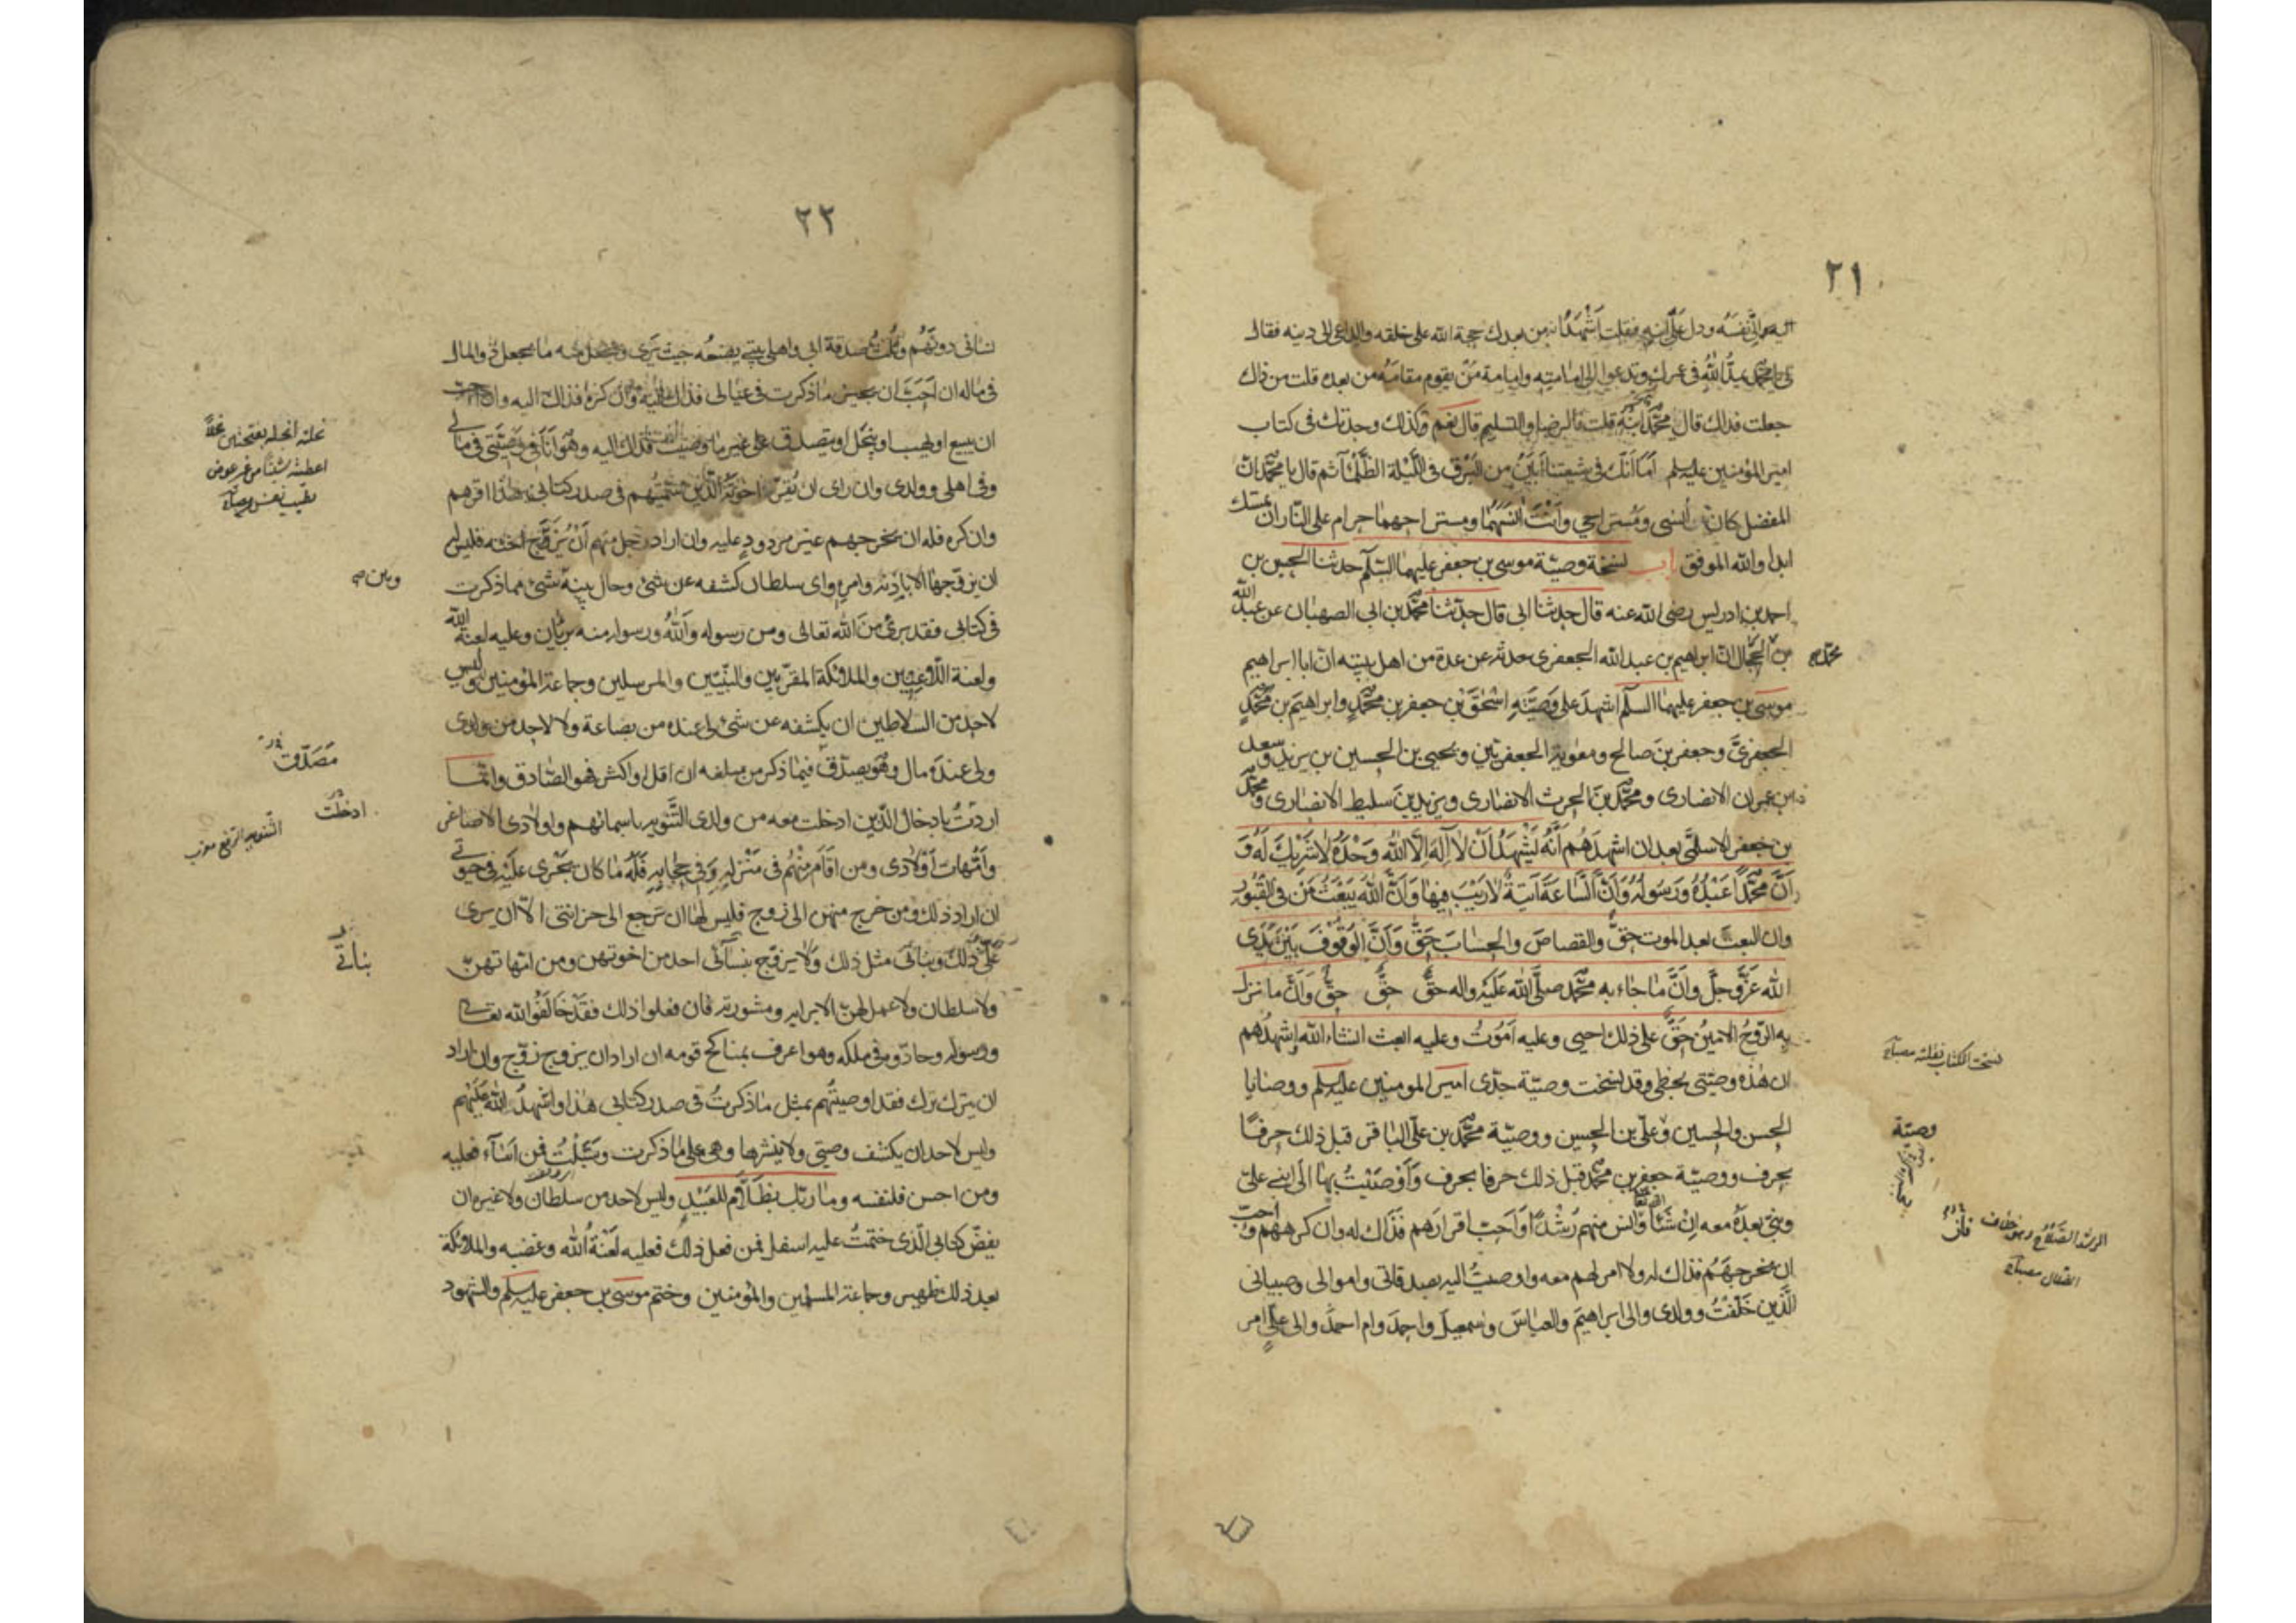 ٢١
اليه والى نفسه ودل على ابنه فقلت اشهد انه من بعدك حجة الله على خلقه والداعى الى دينه فقال
لى يا محمد يمد الله فى عمرك وتدعوا الى امامته وامامة من يقوم مقامه من بعده قلت من ذاك
جعلت فداك قال محمد ابنه قلت فالرضا والتسليم قال نعم وكذلك وجدتك فى كتاب
امير المؤمنين عليه سلم اما انك فى شيعتنا ابين من البرق فى الليلة الظلماء ثم قال يا محمد ان
المفضل كان انسى ومستراحى وانت انسهما ومستراحهما حرام على النار ان تمسك
ابدا والله الموفق باب نسخة وصية موسى بن جعفر عليهما السلم حدثنا الحسين بن
احمد بن ادريس رضى الله عنه قال حدثنا ابى قال حدثنا محمد بن ابى الصهبان عن عبد الله
بن الحجال ان ابراهيم بن عبد الله الجعفرى حدثه عن عدة من اهل بيته ان ابا ابراهيم
موسى بن جعفر عليهما السلم اشهد على وصيته اسحق بن جعفر بن محمد وابراهيم بن محمد
الجعفرى وجعفر بن صالح ومعوية الجعفريين ويحيى بن الحسين بن يزيد وسعد
بن عمران الانصارى ومحمد بن الحرث الانصارى ويزيد بن سليط الانصارى ومحمد
بن جعفر الاسلمى بعد ان اشهدهم انه يشهد ان لا اله الا الله وحده لا شريك له و
ان محمدا عبده ورسوله وان الساعة آتية لا ريب فيها وان الله يبعث من فى القبور
وان البعث بعد الموت حق والقصاص والحساب حق وان الوقوف بين يدى
الله عز وجل وان ما جاء به محمد صلى الله عليه واله حق حق حق وان ما نزل
به الروح الامين حق على ذلك احيى وعليه اموت وعليه ابعث انشاء الله اشهدهم
ان هذه وصيتى بخطى وقد نسخت وصية جدى امير المومنين عليه سلم ووصايا
الحسن والحسين وعلى بن الحسين ووصية محمد بن على الباقر قبل ذلك حرفا
بحرف ووصية جعفر بن محمد قبل ذلك حرفا بحرف واوصيت بها الى ابنى على
وبنى بعده معه ان شاء وانس منهم رشدا واحب اقرارهم فذاك له وان كرههم واحب
ان يخرجهم فذاك له ولا امر لهم معه واوصيت اليه بصدقاتى واموالى وصبيانى
الذين خلفت وولدى والى ابراهيم والعباس واسمعيل واحمد وام احمد والى على امر
محمد
نسخت الكتاب نقلته مصباح
وصية
الرشد الصلاح وهو خلاف
الضلال مصباح
٢٢
نسائى دونهم وثلث صدقة ابى واهل بيتى يضعه حيث يرى ويجعل منه ما يجعل ذو المال
فى ماله ان احب ان يجيز ما ذكرت فى عيالى فذاك اليه وان كره فذاك اليه وان احب
ان يبيع او يهب او ينحل او يتصدق على غير ما وصيت فذلك اليه وهو انا فى وصيتى فى مالى
وفى اهلى وولدى وان راى ان يقر اخوته الذين سميتهم فى صدر كتابى هذا اقرهم
وان كره فله ان يخرجهم غير مردود عليه وان اراد رجل منهم ان يزوج اخته فليس له
ان يزوجها الا باذنه وامره واى سلطان كشفه عن شئ وحال بينه شئ مما ذكرت
فى كتابى فقد برئ من الله تعالى ومن رسوله والله ورسوله منه بريئان وعليه لعنة الله
ولعنة اللاعنين والملائكة المقربين والنبيين والمرسلين وجماعة المؤمنين وليس
لاحد من السلاطين ان يكشفه عن شئ لى عنده من بضاعة ولا لاحد من ولدى
ولى عنده مال وهو يصدق فيما ذكر من مبلغه ان اقل او اكثر فهو الصادق وانما
اردت بادخال الذين ادخلت معه من ولدى التنويه باسمائهم واولادى الاصاغر
وامهات اولادى ومن اقام منهم فى منزله وفى حجابه فله ما كان يجرى عليه فى حيوتى
ان اراد ذلك ومن خرج منهن الى زوج فليس لها ان ترجع الى حزانتى الا ان يرى
على ذلك وبناتى مثل ذلك ولا يزوج بنسائى احد من اخوتهن ومن امهاتهن
ولا سلطان ولا عمل لهن الا برايه ومشورته فان فعلوا ذلك فقد خالفوا الله تعالى
ورسوله وحادوه فى ملكه وهو اعرف بمناكح قومه ان اراد ان يزوج زوج وان اراد
ان يترك ترك فقد اوصيتهم بمثل ما ذكرت فى صدر كتابى هذا واشهد الله عليهم
وليس لاحد ان يكشف وصيتى ولا ينشرها وهى على ما ذكرت وسميت فمن اساء فعليه
ومن احسن فلنفسه وما ربك بظلام للعبيد وليس لاحد من سلطان ولا غيره ان
يفض كتابى الذى ختمت عليه اسفل فمن فعل ذلك فعليه لعنة الله وغضبه والملائكة
بعد ذلك ظهير وجماعة المسلمين والمؤمنين وختم موسى بن جعفر عليه سلم والشهود
اعطيته شيئا من غير عوض
بطيب نفس مصباح
وبين
مصدق
ادخلت
التنويه الرفع
بناتى